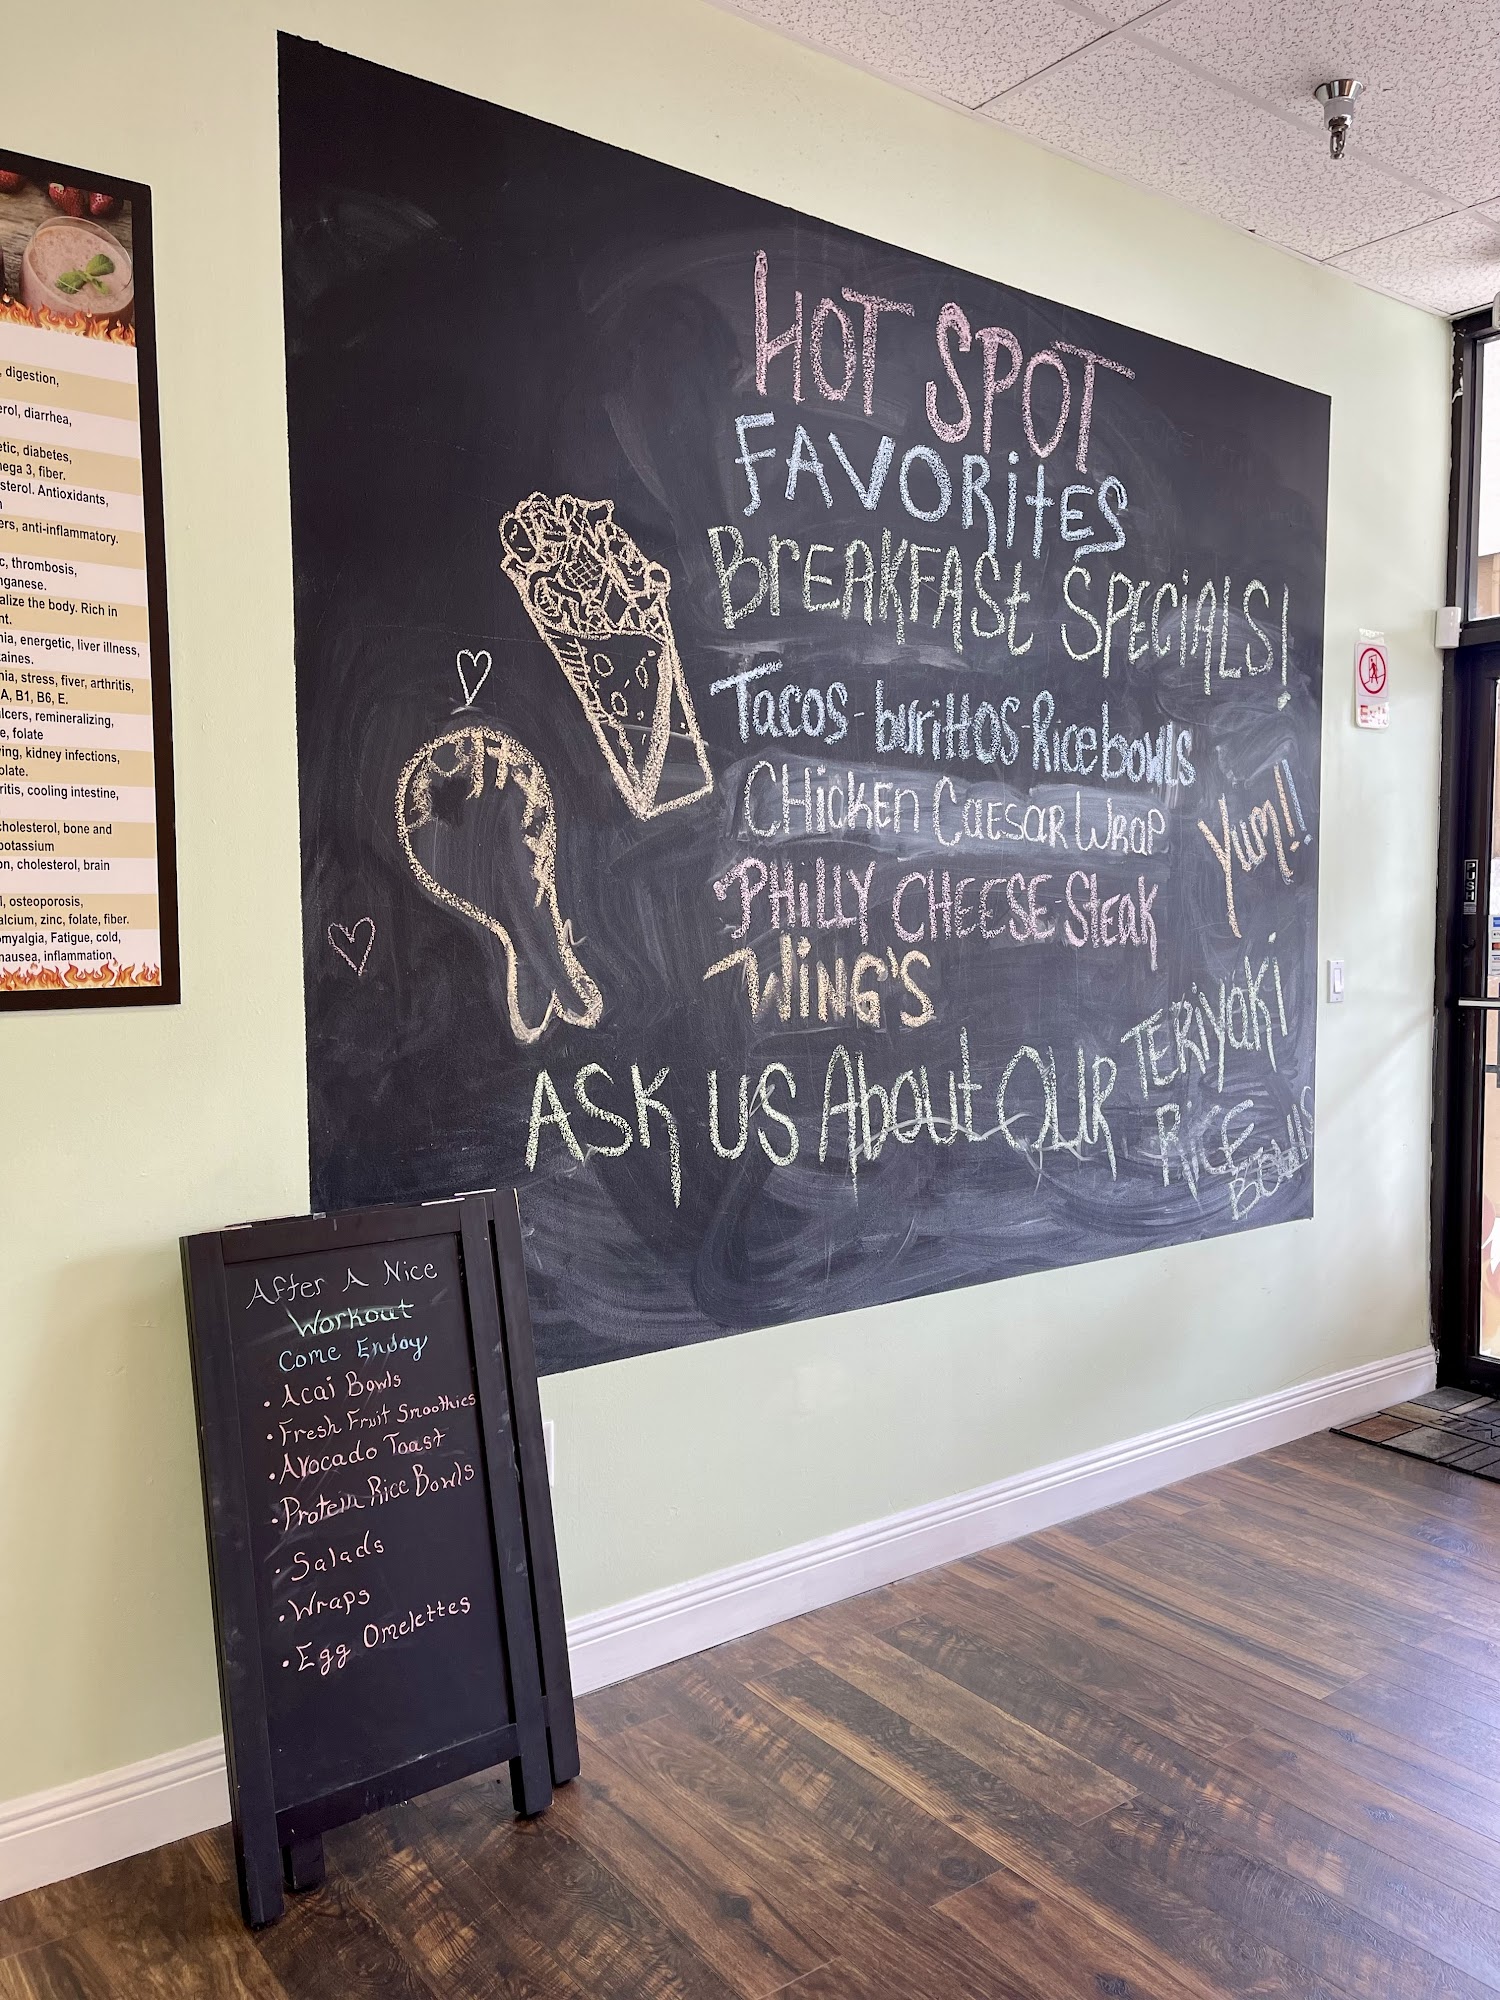 , digestion,
erol, diarrhea,
etic, diabetes,
nega 3, fiber.
sterol. Antioxidants,
ers, anti-inflammatory.
c, thrombosis,
nganese.
alize the body. Rich in
nt.
nia, energetic, liver illness,
taines.
nia, stress, fiver, arthritis,
A, B1, B6, E.
alcers, remineralizing,
e, folate
ving, kidney infections,
olate.
ritis, cooling intestine,
cholesterol, bone and
potassium
on, cholesterol, brain
l, osteoporosis,
alcium, zinc, folate, fiber.
omyalgia, Fatigue, cold,
nausea, inflammation,
HOT SPOT
FAVORITES
BREAKFASt SPECiALS!
Tacos - burittos - Rice bowls
CHicKEN CAESAR WRAP
Yum!!
PHiLLY CHEESE StEAK
WiNG'S
ASK US About OUR TERiYAKi
RiCE
BOWlS
After A Nice
Workout
Come Enjoy
• Acai Bowls
• Fresh Fruit Smoothies
• Avocado Toast
• Protein Rice Bowls
• Salads
• Wraps
• Egg Omelettes
Exit
PUSH